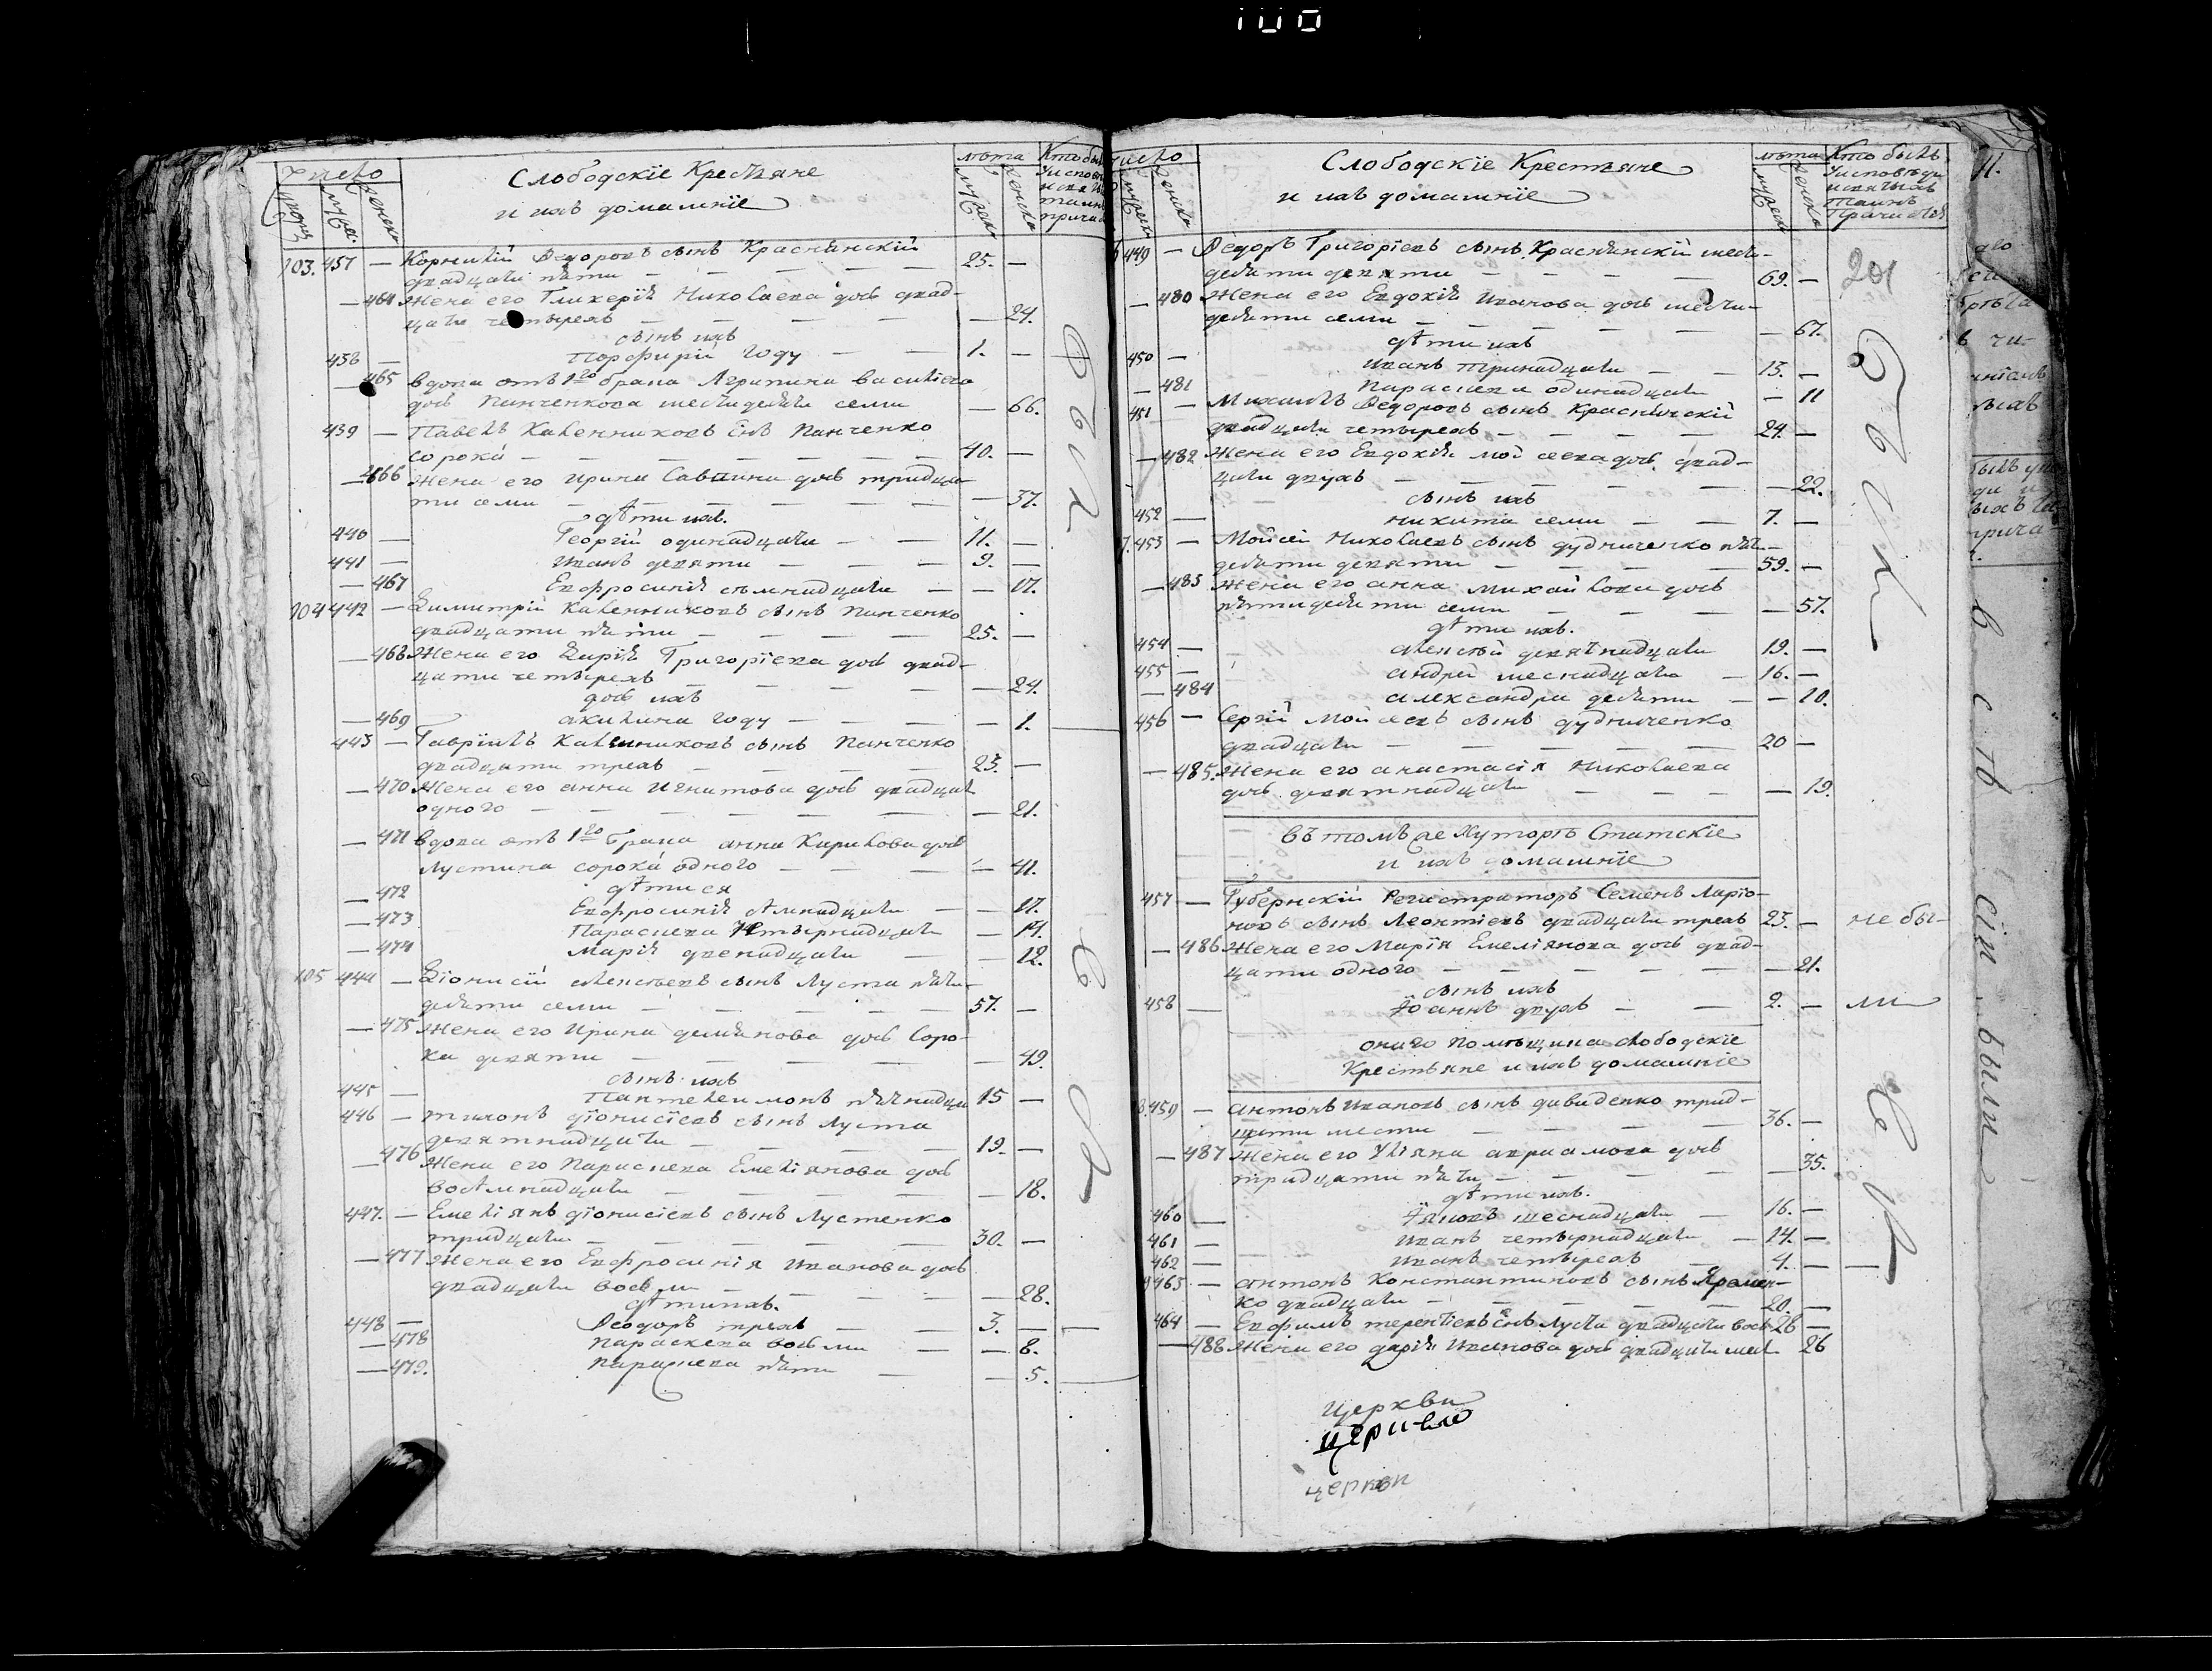 100
Число
Слободскїе Крестьяне
и ихъ домашнїе
лѣта
мужеска
женска
103. 437 — Корнилій Ѳедоровъ сынъ Краснянскій
двадцати пяти — 25. —
— 464 Жена его Гликерія Николаева дочь двад-
цати четырехъ — 24.
сынъ ихъ
438 — Порфирій году — 1. —
— 465 вдова отъ 1го брака Агрипина василїева
дочь Панченкова шестидесяти семи — 66.
439 — Павелъ Каленниковъ снъ Панченко
сорока — 40. —
— 466 Жена его Ирина Саввина дочь тридца-
ти семи — 37.
дѣти ихъ.
440 — Георгій одинадцати — 11. —
441 — Иванъ девяти — 9. —
— 467 Евфросинія сѣмнадцати — 17.
104 442 — Димитрій Каленниковъ сынъ Панченко
двадцати пяти — 25. —
— 468 Жена его Дарія Григорїева дочь двад-
цати четырехъ — 24.
дочь ихъ
— 469 акилина году — 1.
443 — Гаврїилъ Каленниковъ сынъ Панченко
двадцати трехъ — 23. —
— 470 Жена его анна Игнатова дочь двадцат
одного — 21.
— 471 вдова отъ 1го брака анна Кирилова дочь
Лустина сорока одного — 41.
дѣти ея
— 472 Евфросинія сѣмнадцати — 17.
— 473 Параскева Четырнадцати — 14.
— 474 Марія двенадцати — 12.
105 444 — Дїонисій алексѣевъ сынъ Луста пяти-
десяти семи — 57. —
— 475 Жена его Ирина демянова дочь Соро-
ка девяти — 49.
сынъ ихъ
445 — Пантелеимонъ пятнадца 15 —
446 — тихонъ дїонисїевъ сынъ Луста
девятнадцати — 19. —
— 476 Жена его Параскева Емелїянова дочь
восемнадцати — 18.
447. — Емелїянъ дїонисїевъ сынъ Лустенко
тридцати — 30. —
— 477 Жена его Евфросинїя Иванова дочь
двадцати восьми — 28.
дѣти ихъ.
448 — Ѳеодоръ трехъ — 3. —
— 478 Параскева восьми — 8.
— 479. Параскева пяти — 5.
Число
Слободскїе Крестьяне
и ихъ домашнїе
лѣта
Кто былъ
Уисповѣди
и святыхъ
таинъ
Причастія
201
449 — Ѳедоръ Григорїевъ сынъ Краснянскій шести-
десяти девяти — 69. —
— 480 Жена его Евдокія Иванова дочь шести-
десяти семи — 67.
дѣти ихъ
450 — Иванъ Тринадцати — 13. —
— 481 Параскева одинадцати — 11
451 — Михаилъ Ѳедоровъ сынъ Краснянскій
двадцати четырехъ — 24. —
— 482 Жена его Евдокія мойсеева дочь двад-
цати двухъ — 22.
сынъ ихъ
452 — никита семи — 7. —
453 — Мойсей Николаевъ сынъ дудниченко пяти-
десяти девяти — 59. —
— 483 Жена его анна михайлова дочь
пятидесяти семи — 57.
дѣти ихъ.
454 — алексѣй девятнадцати 19. —
455 — андрей шеснадцати — 16. —
— 484 александра десяти — 10.
456 — Сергій Мойсеевъ сынъ дудниченко
двадцати — 20 —
— 485. Жена его анастасїя Николаева
дочь девятнадцати — 19.
въ томъ же Хуторѣ Статскїе
и ихъ домашнїе
457 — Губернскїй Регистраторъ Семенъ Ларїо-
новъ сынъ Леонтїевъ двадцати трехъ 23. — не бы-
— 486 Жена его Марїя Емелїянова дочь двад-
цати одного — 21.
сынъ ихъ
458 — Їоаннъ двухъ — 2. — ли
онаго Помѣщика слободскїе
Крестьяне и ихъ домашнїе
459 — антонъ Ивановъ сынъ давиденко трид-
цати шести — 36. —
— 487 Жена его Улїяна авраамова дочь
тридцати пяти — 35.
дѣти ихъ.
460 — Їяковъ шеснадцати — 16. —
461 — Иванъ четырнадцати — 14. —
462 — Иванъ четырехъ — 4. —
463 — антонъ Константиновъ сынъ Яремен-
ко двадцати — 20. —
464 — Евфимъ терентїевъ снъ Луста двадцати вось 28 —
— 488 Жена его дарія Иванова дочь двадцати шест 26
Церкви
церкви